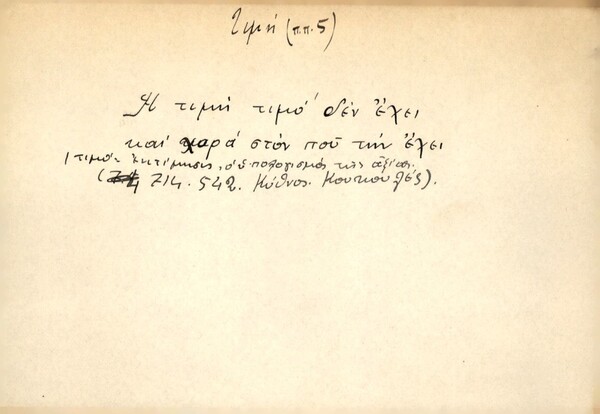 Τιμή (π.π. 5)
Ἡ τιμή τιμό' δέν ἔχει
καί χαρά στόν ποῦ τήν ἔχει
1 τιμό = ἐκτίμησις, ὁ ὑπολογισμός τῆς ἀξίας.
( 714. 542. Κύθνος. Κουκουλές).